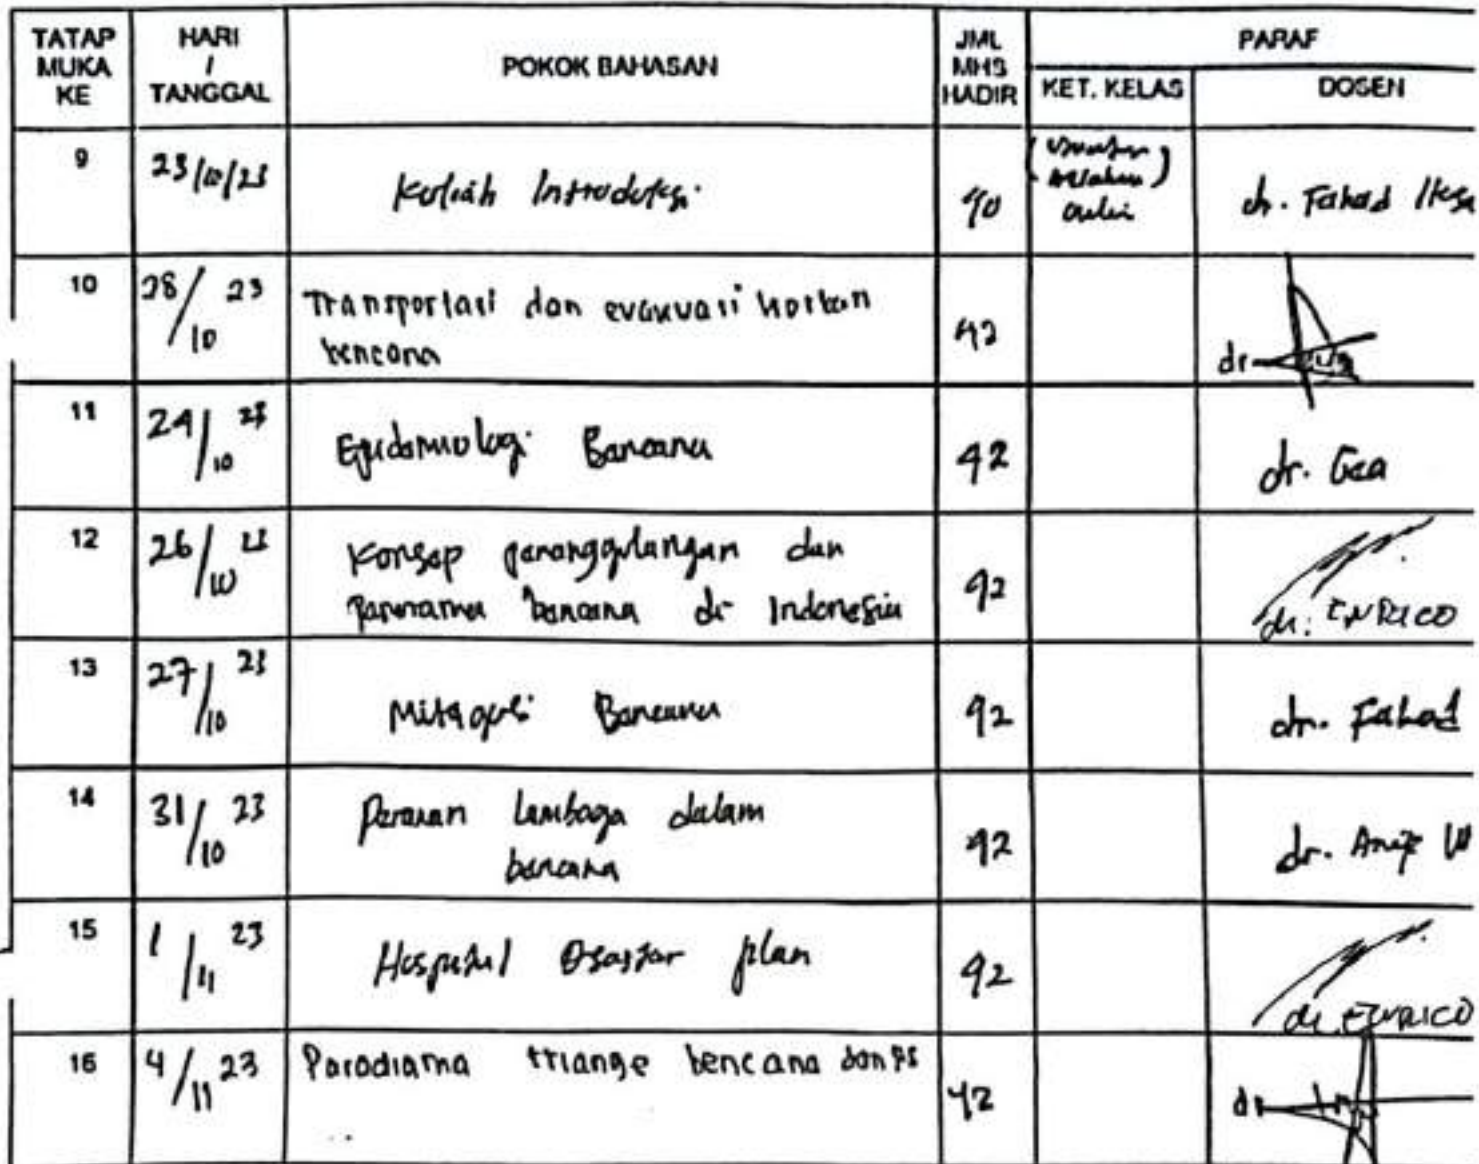 TATAP MUKA KE HARI / TANGGAL POKOK BAHASAN JML MHS HADIR PARAF
KET. KELAS DOSEN
9 23/10/23 Kuliah Introduksi 40 dr. Fahad
10 28/10 23 Transportasi dan evakuasi korban
bencana 42 dr
11 24/10 23 Epidemiologi Bencana 42 dr. Gea
12 26/10 23 Konsep penanggulangan dan
bencana di Indonesia 42 dr. ENRICO
13 27/10 23 Mitagasi Bencana 42 dr. Fahad
14 31/10 23 Peranan lembaga dalam
bencana 42 dr. Anif W
15 1/11 23 Hospital plan 42 dr. ENRICO
16 4/11 23 Paradigma triange bencana dan 42 dr